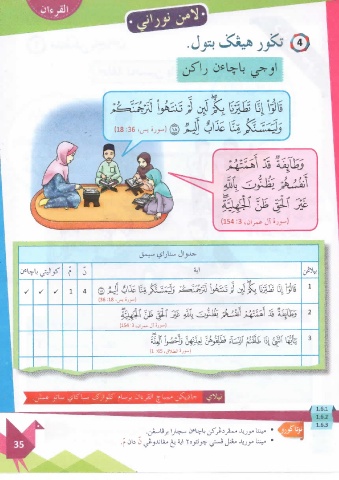 القرءان
لامن نوراني
4 تكور هيڠݢ بتول.
اوجي باچاءن راكن
قَالُوٓا۟ إِنَّا تَطَيَّرْنَا بِكُمْ لَئِن لَّمْ تَنتَهُوا۟ لَنَرْجُمَنَّكُمْ
وَلَيَمَسَّنَّكُم مِّنَّا عَذَابٌ أَلِيمٌ ١٨
(سورة يس، 36: 18)
وَطَآئِفَةٌ قَدْ أَهَمَّتْهُمْ
أَنفُسُهُمْ يَظُنُّونَ بِٱللَّهِ
غَيْرَ ٱلْحَقِّ ظَنَّ ٱلْجَٰهِلِيَّةِ
(سورة آل عمران، 3: 154)
جدوال سناراي سيمق
بيلاڠن آية نّ مّ كواليتي باچاءن
1 قَالُوٓا۟ إِنَّا تَطَيَّرْنَا بِكُمْ لَئِن لَّمْ تَنتَهُوا۟ لَنَرْجُمَنَّكُمْ وَلَيَمَسَّنَّكُم مِّنَّا عَذَابٌ أَلِيمٌ ١٨ 4 1 ✓ ✓ ✓
(سورة يس، 36: 18)
2 وَطَآئِفَةٌ قَدْ أَهَمَّتْهُمْ أَنفُسُهُمْ يَظُنُّونَ بِٱللَّهِ غَيْرَ ٱلْحَقِّ ظَنَّ ٱلْجَٰهِلِيَّةِ
(سورة آل عمران، 3: 154)
3 يَٰٓأَيُّهَا ٱلنَّبِىُّ إِذَا طَلَّقْتُمُ ٱلنِّسَآءَ فَطَلِّقُوهُنَّ لِعِدَّتِهِنَّ وَأَحْصُوا۟ ٱلْعِدَّةَ
(سورة الطلاق، 65: 1)
نيلاي
1.6.1
1.6.2
1.6.3
نوتا ݢورو
• مينتا موريد ممڤردڠركن باچاءن سچارا برڤاسڠن.
• مينتا موريد مڠنل ڤستي چونتوه2 آية يڠ مڠاندوڠي نّ دان مّ.
35